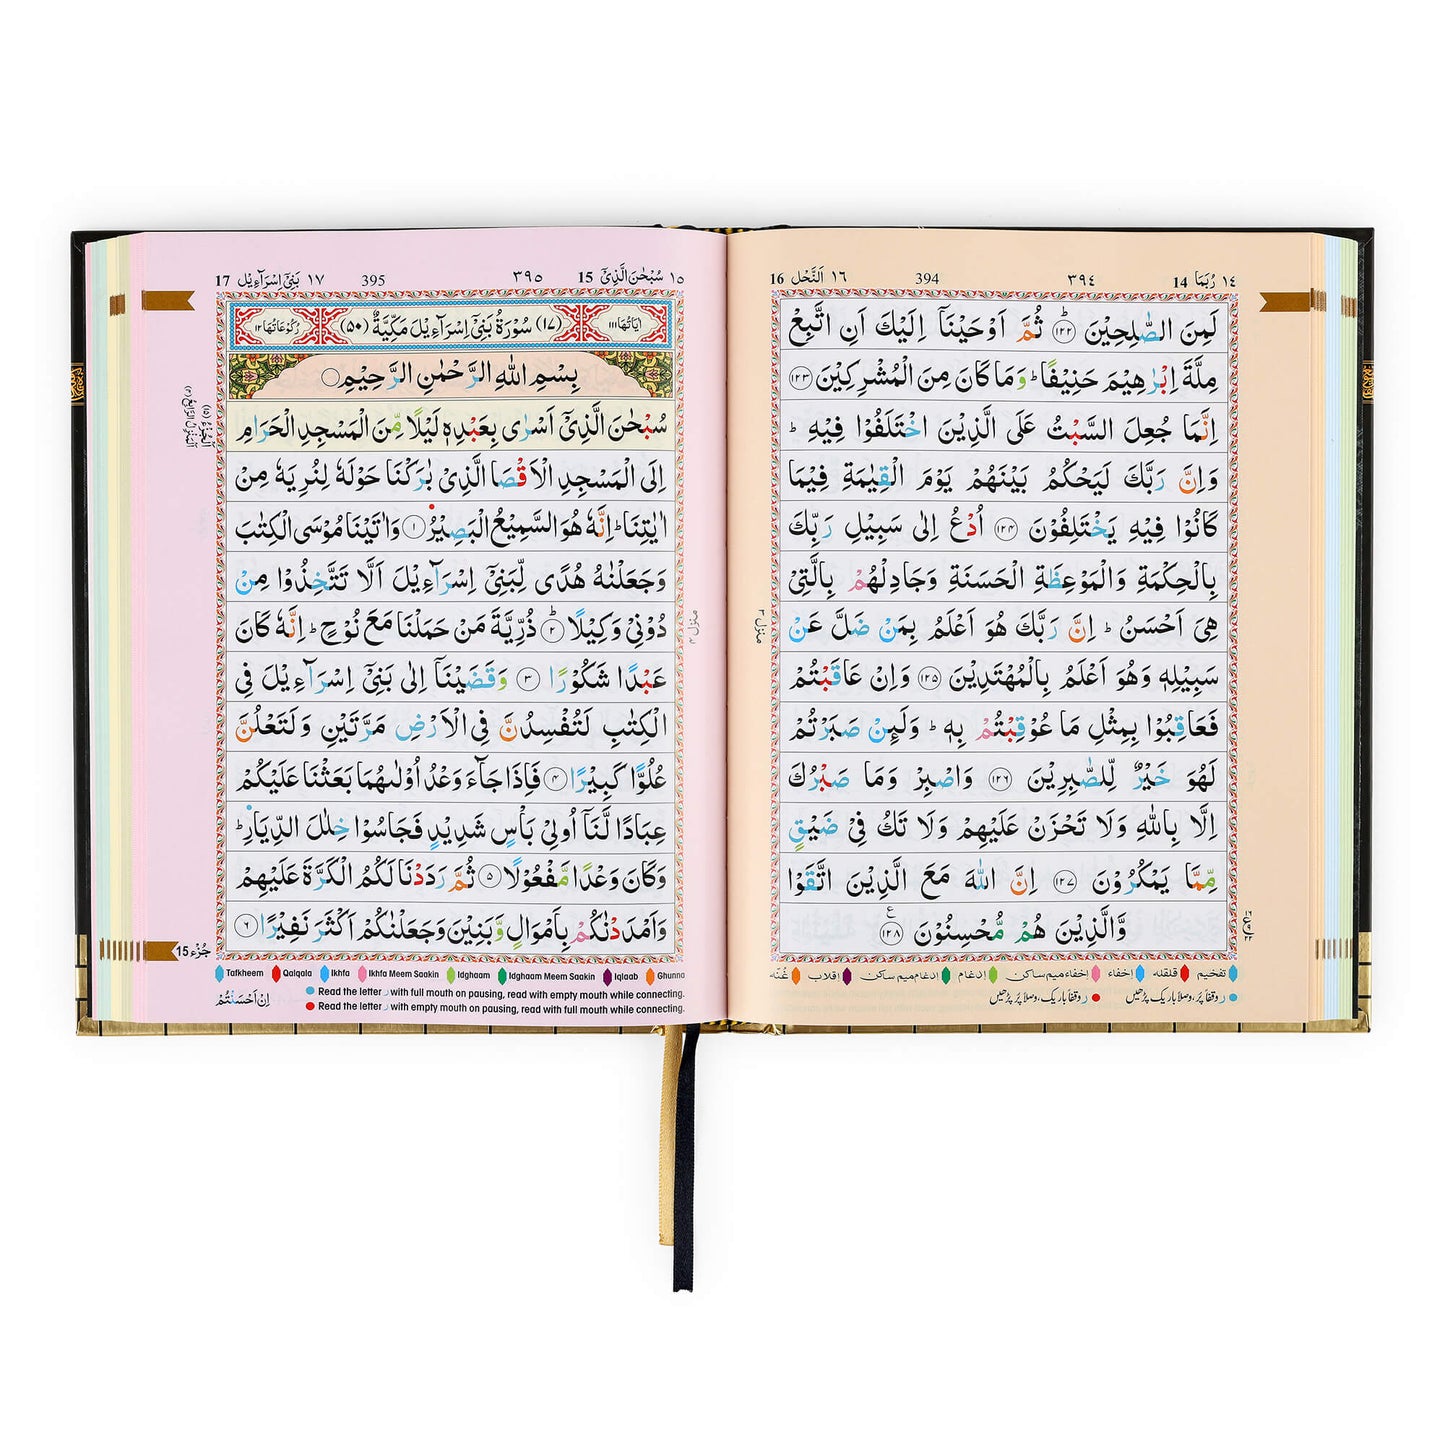 ١٤ رُبَمَا 14
٣٩٤
394
١٦ اَلنَّحْل 16
لَمِنَ الصّٰلِحِيْنَ ۝١٢٢ ثُمَّ اَوْحَيْنَاۤ اِلَيْكَ اَنِ اتَّبِعْ
مِلَّةَ اِبْرٰهِيْمَ حَنِيْفًا ؕ وَمَا كَانَ مِنَ الْمُشْرِكِيْنَ ۝١٢٣
اِنَّمَا جُعِلَ السَّبْتُ عَلَى الَّذِيْنَ اخْتَلَفُوْا فِيْهِ ؕ
وَاِنَّ رَبَّكَ لَيَحْكُمُ بَيْنَهُمْ يَوْمَ الْقِيٰمَةِ فِيْمَا
كَانُوْا فِيْهِ يَخْتَلِفُوْنَ ۝١٢٤ اُدْعُ اِلٰى سَبِيْلِ رَبِّكَ
بِالْحِكْمَةِ وَالْمَوْعِظَةِ الْحَسَنَةِ وَجَادِلْهُمْ بِالَّتِيْ
هِيَ اَحْسَنُ ؕ اِنَّ رَبَّكَ هُوَ اَعْلَمُ بِمَنْ ضَلَّ عَنْ
سَبِيْلِهٖ وَهُوَ اَعْلَمُ بِالْمُهْتَدِيْنَ ۝١٢٥ وَاِنْ عَاقَبْتُمْ
فَعَاقِبُوْا بِمِثْلِ مَا عُوْقِبْتُمْ بِهٖ ؕ وَلَئِنْ صَبَرْتُمْ
لَهُوَ خَيْرٌ لِّلصّٰبِرِيْنَ ۝١٢٦ وَاصْبِرْ وَمَا صَبْرُكَ
اِلَّا بِاللّٰهِ وَلَا تَحْزَنْ عَلَيْهِمْ وَلَا تَكُ فِيْ ضَيْقٍ
مِّمَّا يَمْكُرُوْنَ ۝١٢٧ اِنَّ اللّٰهَ مَعَ الَّذِيْنَ اتَّقَوْا
وَّالَّذِيْنَ هُمْ مُّحْسِنُوْنَ ۝١٢٨ ع
منزل ٣
تفخیم قلقله إخفاء إخفاء ميم ساكن إدغام إدغام ميم ساكن إقلاب غُنّه
ر وقفاً پُر، وصلاً باریک پڑھیں ر وقفاً باریک، وصلاً پُر پڑھیں
١٥ سُبْحٰنَ الَّذِيْۤ 15
٣٩٥
395
١٧ بَنِيْۤ اِسْرَآءِيْل 17
اٰيَاتُهَا ١١١
(١٧) سُوْرَةُ بَنِيْۤ اِسْرَآءِيْلَ مَكِّيَّةٌ (٥٠)
رُكُوْعَاتُهَا ١٢
بِسْمِ اللّٰهِ الرَّحْمٰنِ الرَّحِيْمِ ۝
سُبْحٰنَ الَّذِيْۤ اَسْرٰى بِعَبْدِهٖ لَيْلًا مِّنَ الْمَسْجِدِ الْحَرَامِ
اِلَى الْمَسْجِدِ الْاَقْصَا الَّذِيْ بٰرَكْنَا حَوْلَهٗ لِنُرِيَهٗ مِنْ
اٰيٰتِنَا ؕ اِنَّهٗ هُوَ السَّمِيْعُ الْبَصِيْرُ ۝١ وَاٰتَيْنَا مُوْسَى الْكِتٰبَ
وَجَعَلْنٰهُ هُدًى لِّبَنِيْۤ اِسْرَآءِيْلَ اَلَّا تَتَّخِذُوْا مِنْ
دُوْنِيْ وَكِيْلًا ۝٢ؕ ذُرِّيَّةَ مَنْ حَمَلْنَا مَعَ نُوْحٍ ؕ اِنَّهٗ كَانَ
عَبْدًا شَكُوْرًا ۝٣ وَقَضَيْنَاۤ اِلٰى بَنِيْۤ اِسْرَآءِيْلَ فِي
الْكِتٰبِ لَتُفْسِدُنَّ فِي الْاَرْضِ مَرَّتَيْنِ وَلَتَعْلُنَّ
عُلُوًّا كَبِيْرًا ۝٤ فَاِذَا جَآءَ وَعْدُ اُوْلٰىهُمَا بَعَثْنَا عَلَيْكُمْ
عِبَادًا لَّنَاۤ اُولِيْ بَاْسٍ شَدِيْدٍ فَجَاسُوْا خِلٰلَ الدِّيَارِ ؕ
وَكَانَ وَعْدًا مَّفْعُوْلًا ۝٥ ثُمَّ رَدَدْنَا لَكُمُ الْكَرَّةَ عَلَيْهِمْ
وَاَمْدَدْنٰكُمْ بِاَمْوَالٍ وَّبَنِيْنَ وَجَعَلْنٰكُمْ اَكْثَرَ نَفِيْرًا ۝٦
منزل ٤
اَلْجُزْءُ (١٥)
اَلْمَنْزِلُ الرَّابِعُ (٤)
جُزْء 15
Tafkheem Qalqala Ikhfa Ikhfa Meem Saakin Idghaam Idghaam Meem Saakin Iqlaab Ghunna
Read the letter ر with full mouth on pausing, read with empty mouth while connecting.
Read the letter ر with empty mouth on pausing, read with full mouth while connecting.
اِنْ اَحْسَنْتُمْ